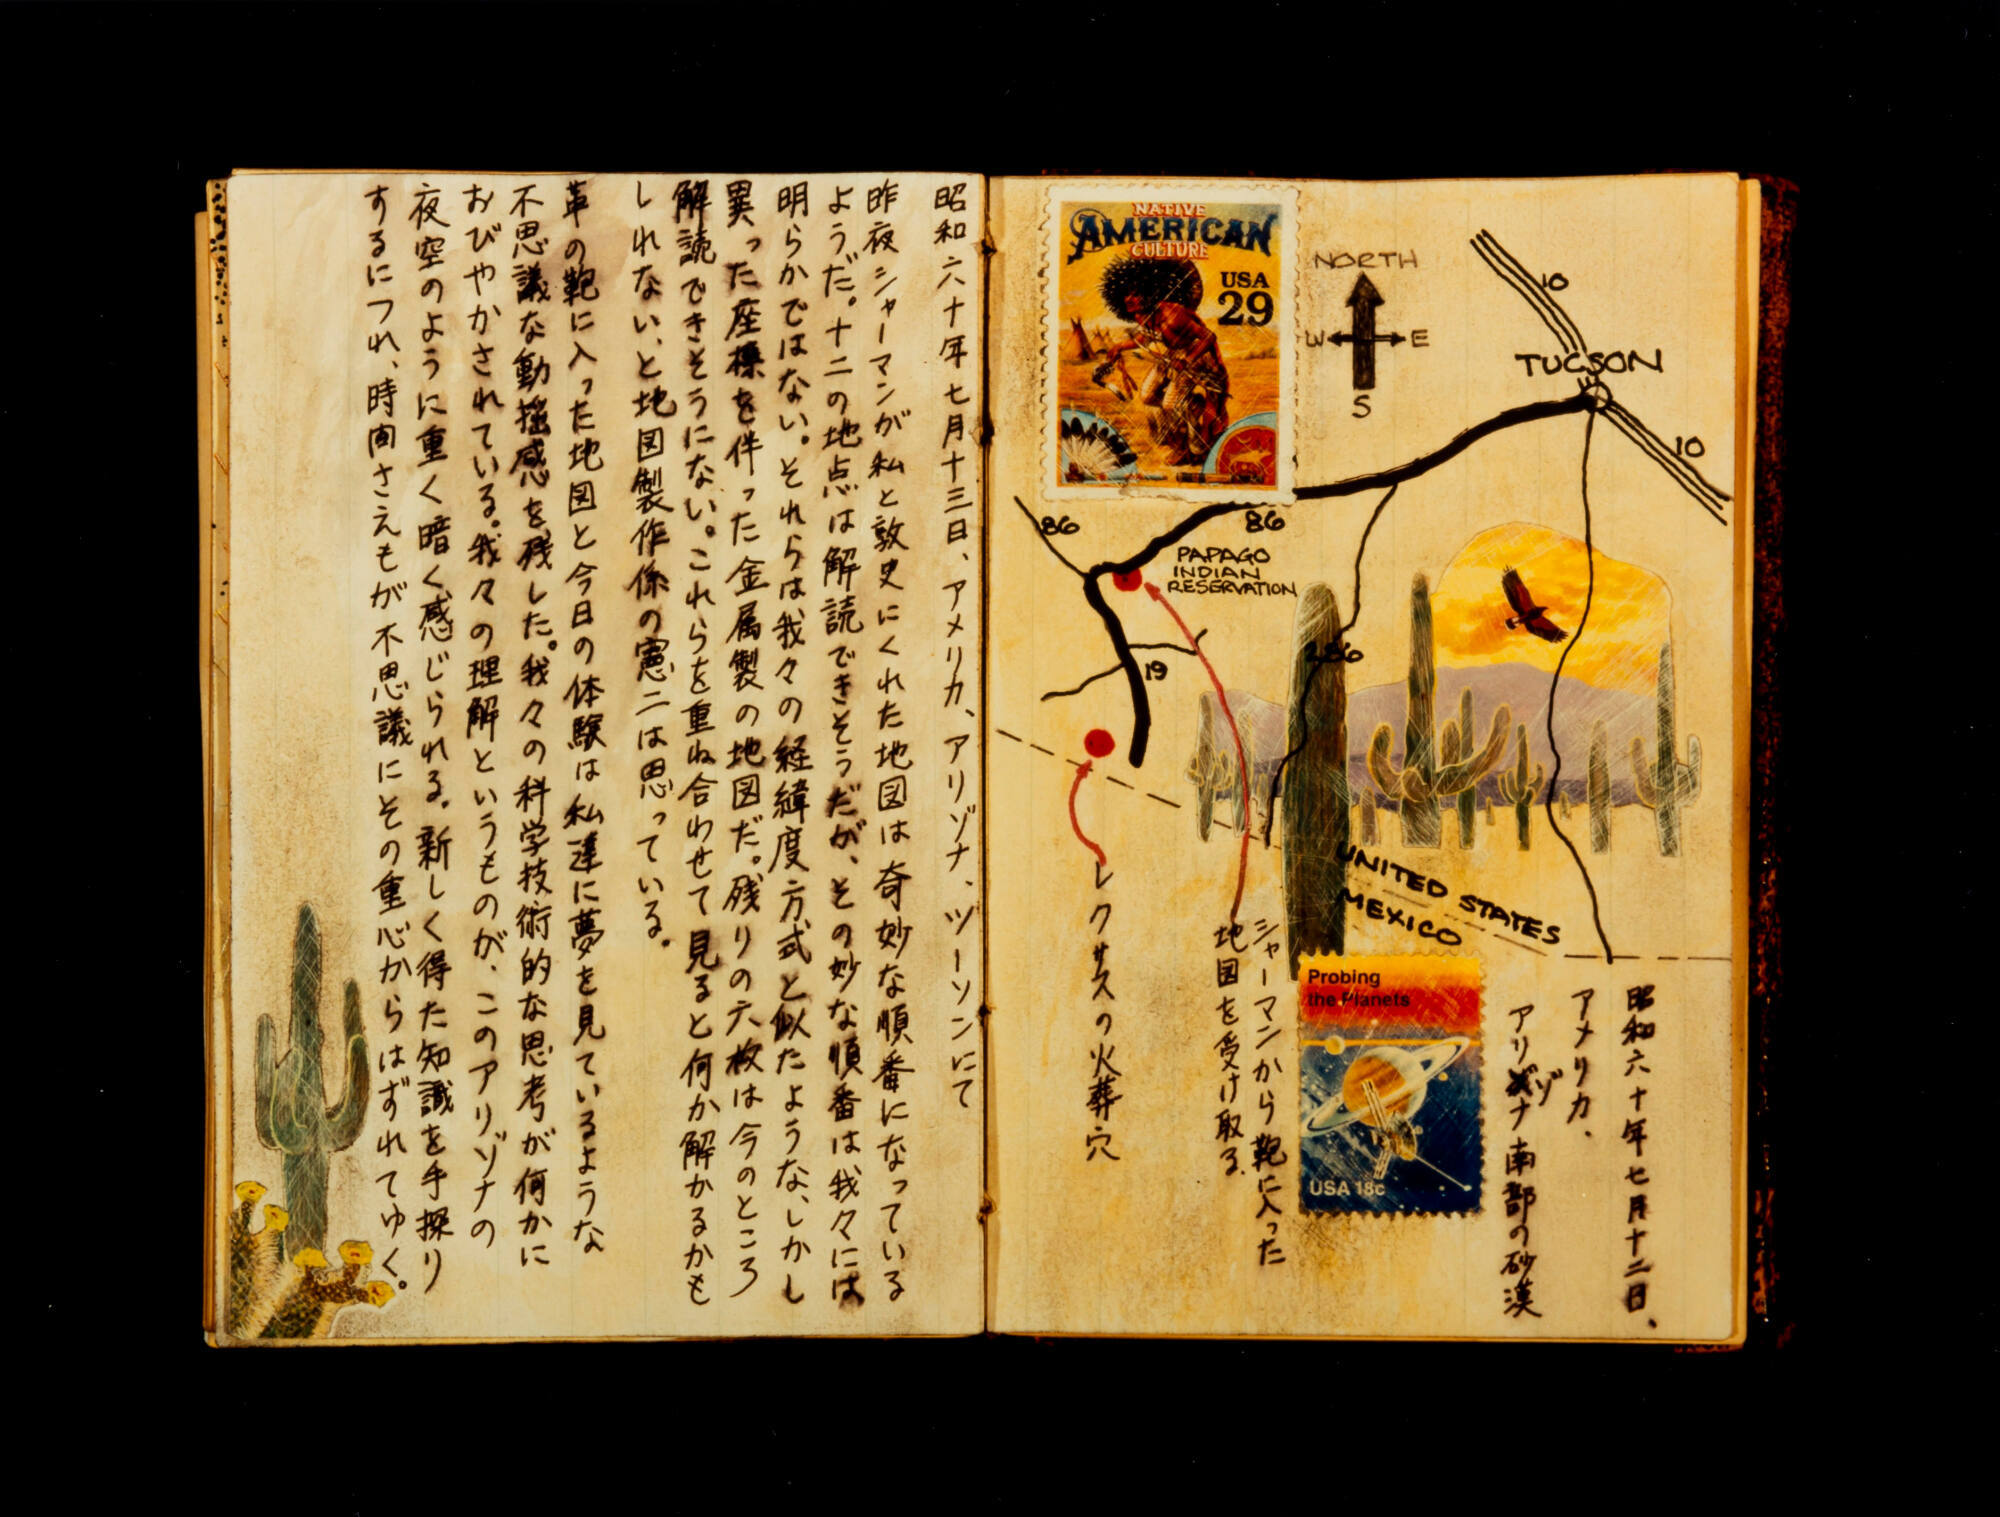 昭和六十年七月十二日、
アメリカ、
アリゾナ南部の砂漠
シャーマンから鞄に入った
地図を受け取る.
レクサスの火葬穴
NATIVE
AMERICAN
CULTURE
USA
29
NORTH
W
E
S
10
TUCSON
10
86
86
PAPAGO
INDIAN
RESERVATION
19
286
UNITED STATES
MEXICO
Probing
the Planets
USA 18c
昭和六十年七月十三日、アメリカ、アリゾナ、ツーソンにて
昨夜シャーマンが私と敦史にくれた地図は奇妙な順番になっている
ようだ。十二の地点は解読できそうだが、その妙な順番は我々には
明らかではない。それらは我々の経緯度方式と似たような、しかし
異った座標を伴った金属製の地図だ。残りの六枚は今のところ
解読できそうにない。これらを重ね合わせて見ると何か解かるかも
しれない、と地図製作係の憲二は思っている。
革の鞄に入った地図と今日の体験は私達に夢を見ているような
不思議な動揺感を残した。我々の科学技術的な思考が何かに
おびやかされている。我々の理解というものが、このアリゾナの
夜空のように重く暗く感じられる。新しく得た知識を手探り
するにつれ、時間さえもが不思議にその重心からはずれてゆく。